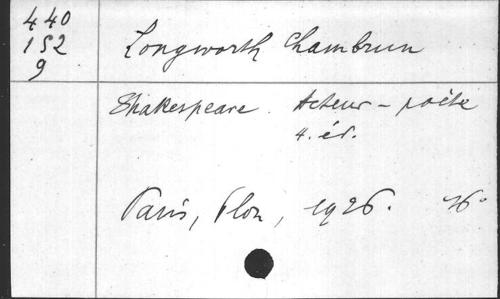 440
152
9
Longworth Chambrun
Shakespeare. Acteur-poète
4. éd.
Paris, Plon, 1926. 16°